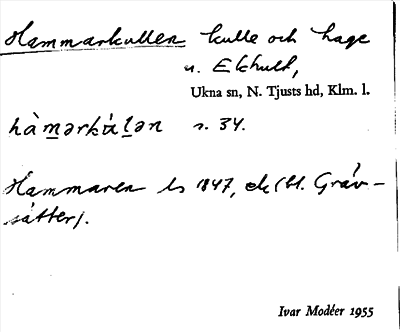 Hammarkullen kulle och hage
u. Ekhult,
Ukna sn, N. Tjusts hd, Klm. l.
hàmərkúlən s. 34.
Hammaren ls 1847, ek (bl. Gräv-
sätter).
Ivar Modéer 1955